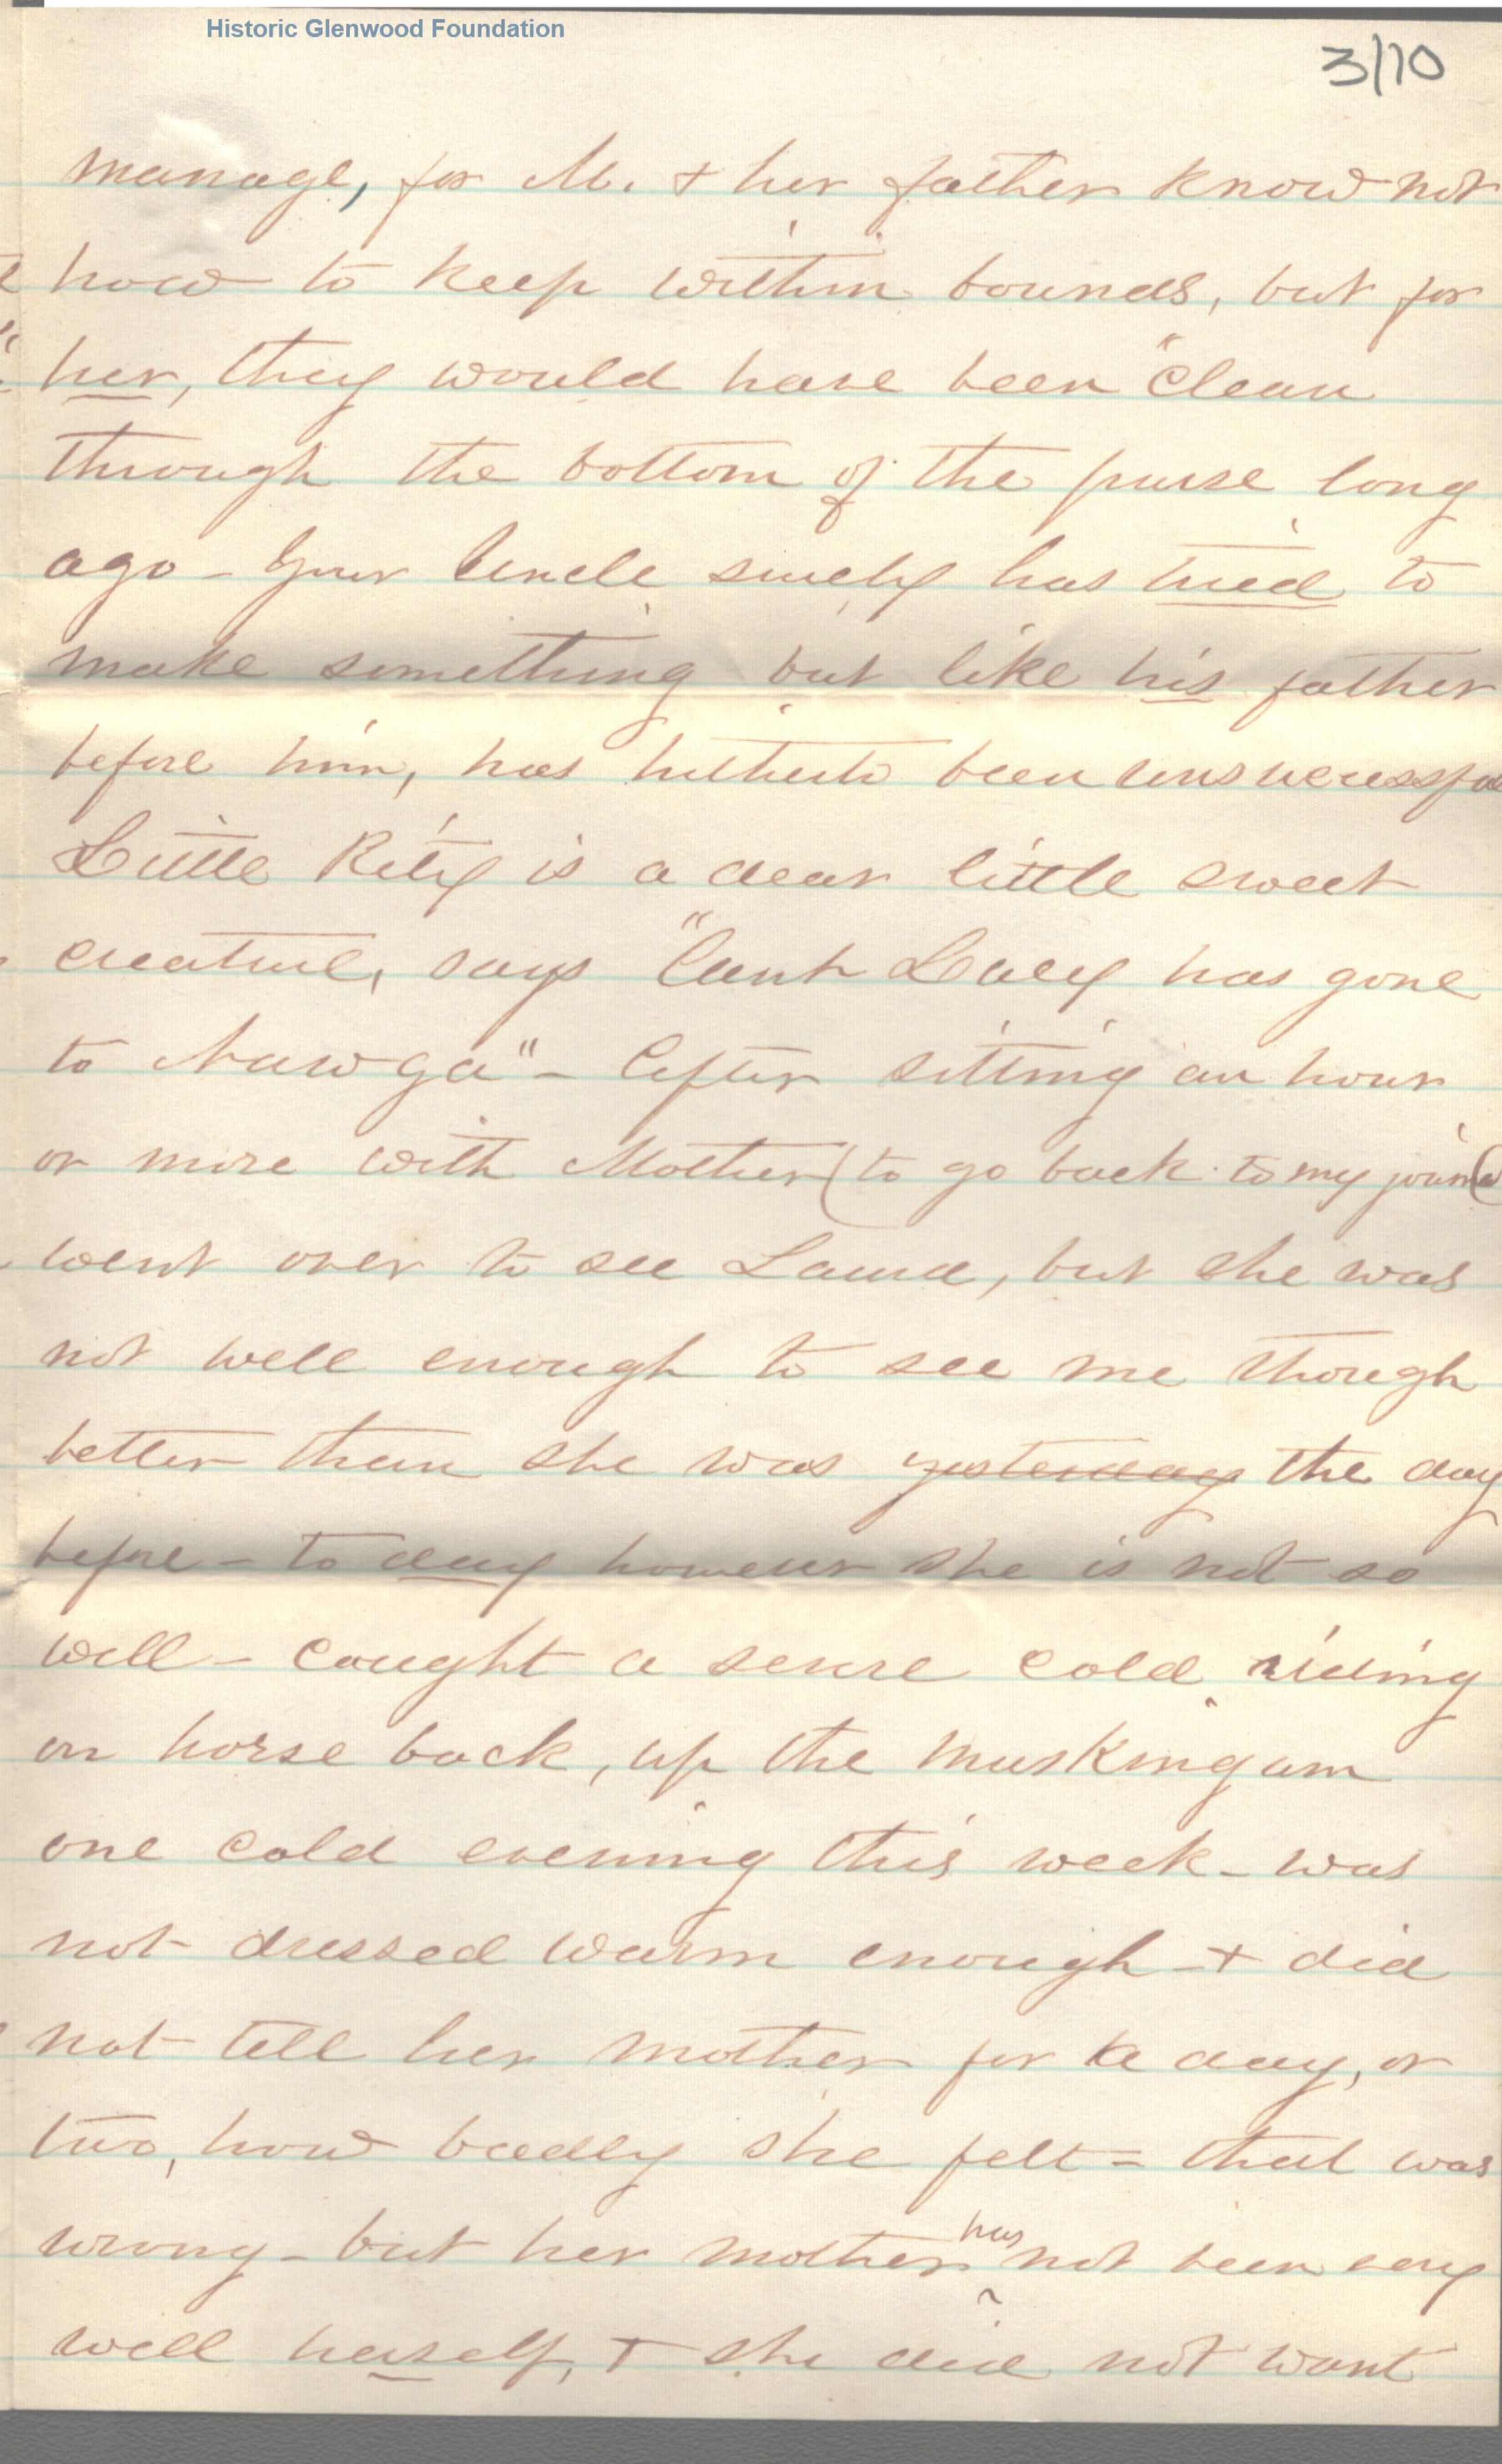 Historic Glenwood Foundation
3/10
manage, for M. + her father know not
how to keep within bounds, but for
her, they would have been "clean
through the bottom of the purse long
ago - Your Uncle surely has tried to
make something but like his father
before him, has hitherto been unsuccessful
Little Kity is a dear little sweet
creature, says "Aunt Lucy has gone
to Nawga" - After sitting an hour
or more with Mother (to go back to my
went over to see Laura, but she was
not well enough to see me though
better than she was yesterday the day
before - to day however she is not so
well - caught a severe cold riding
on horse back, up the Muskingum
one cold evening this week - was
not dressed warm enough - + did
not tell her mother for a day, or
two, how badly she felt = that was
wrong - but her mother has not been very
well herself, + she did not want